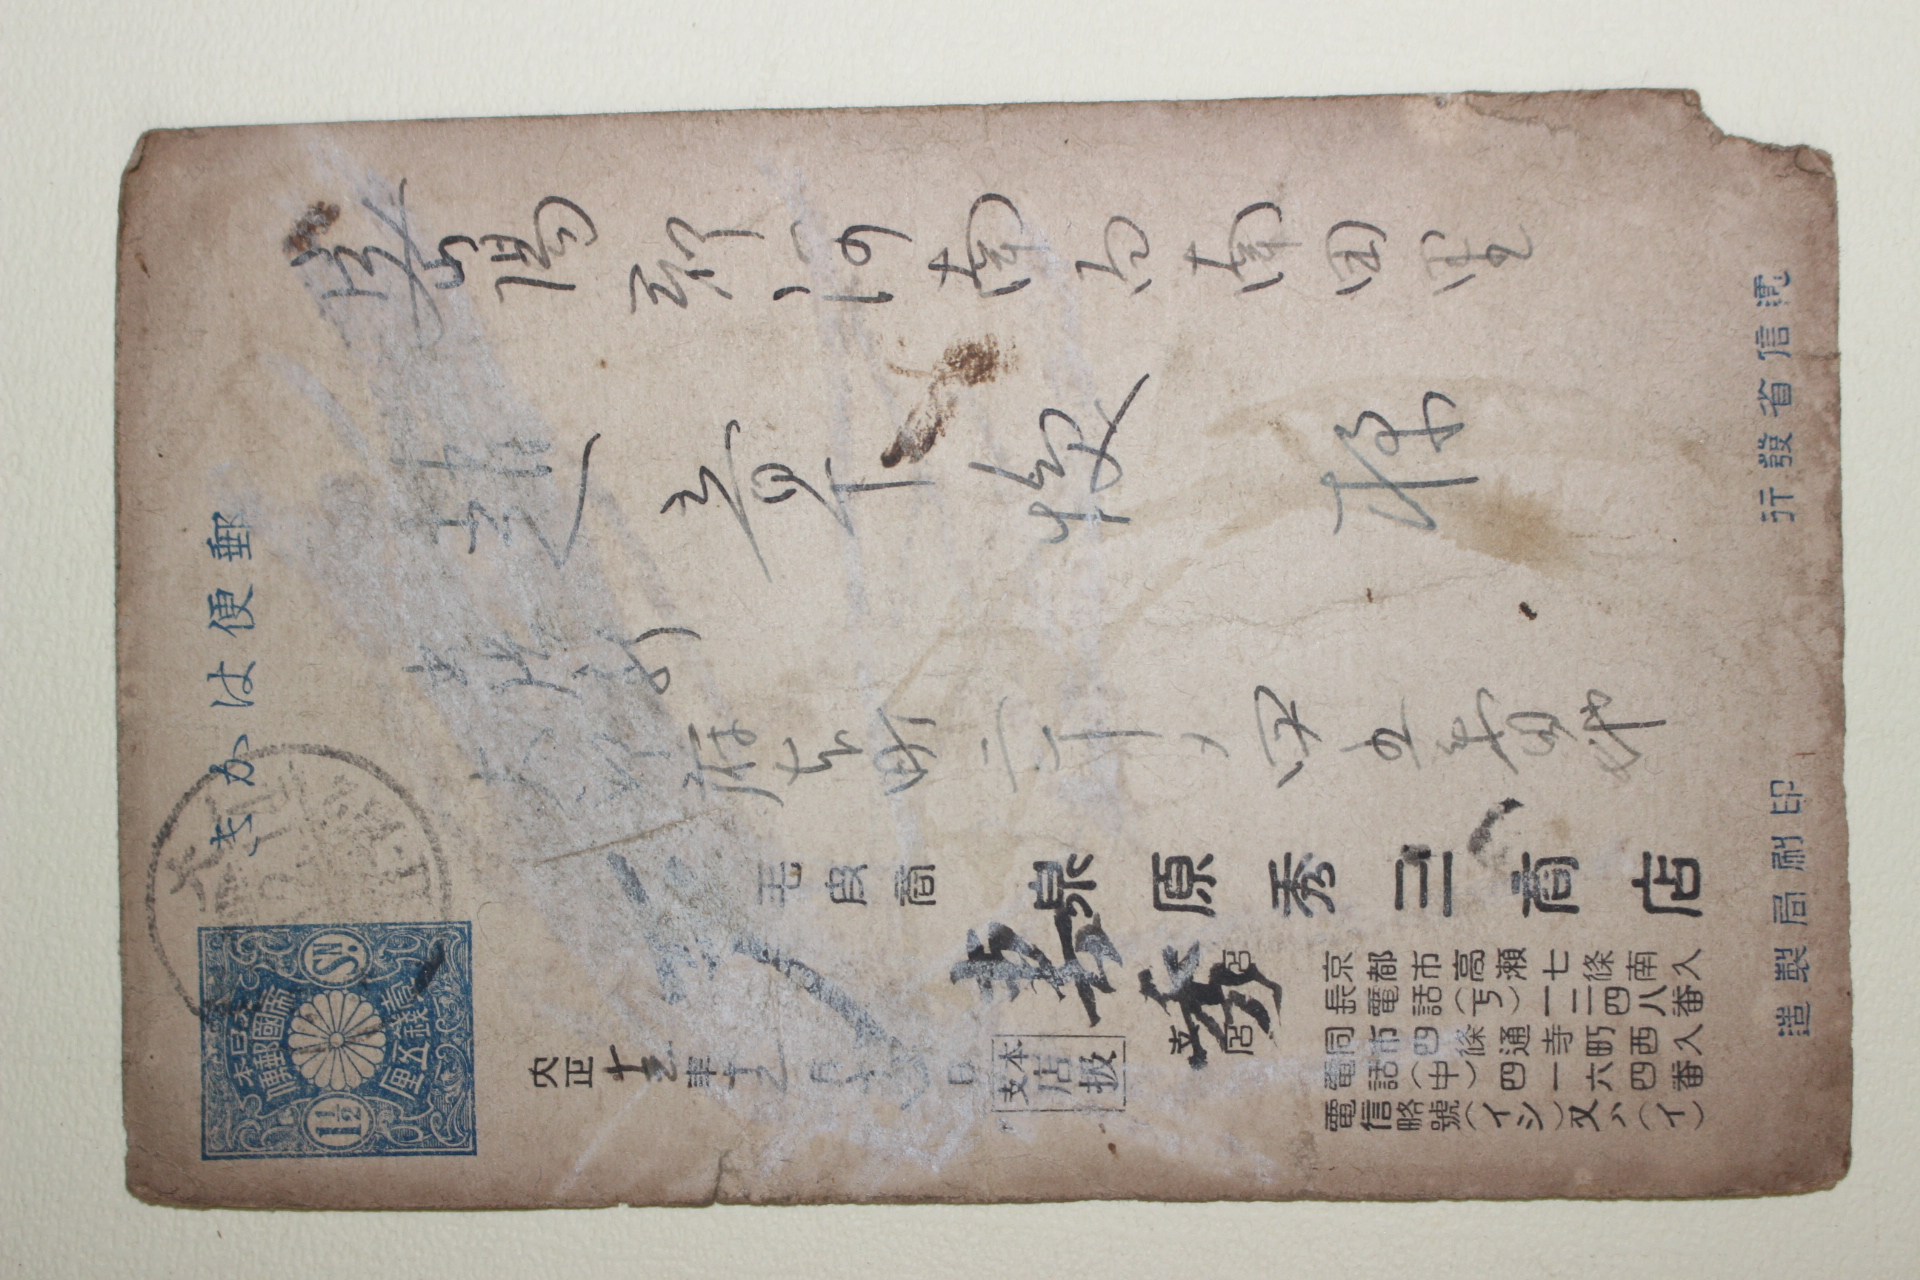 郵便はかき
大日本
帝國郵便
1½ SN.
壹錢五厘
陽郡河南面南田里
趙章下煥様
大邱府本町二丁ノ四五番地
毛皮商 泉原秀三商店
京都市高瀬七條南入
長電話(下)一二四八番
同市四條通寺町西入
電話(中)四一六四番
電信略號(イシ)又ハ(イ)
支店
本支店扱
大正十三年十二月 日
秀
遞信省發行
印刷局製造